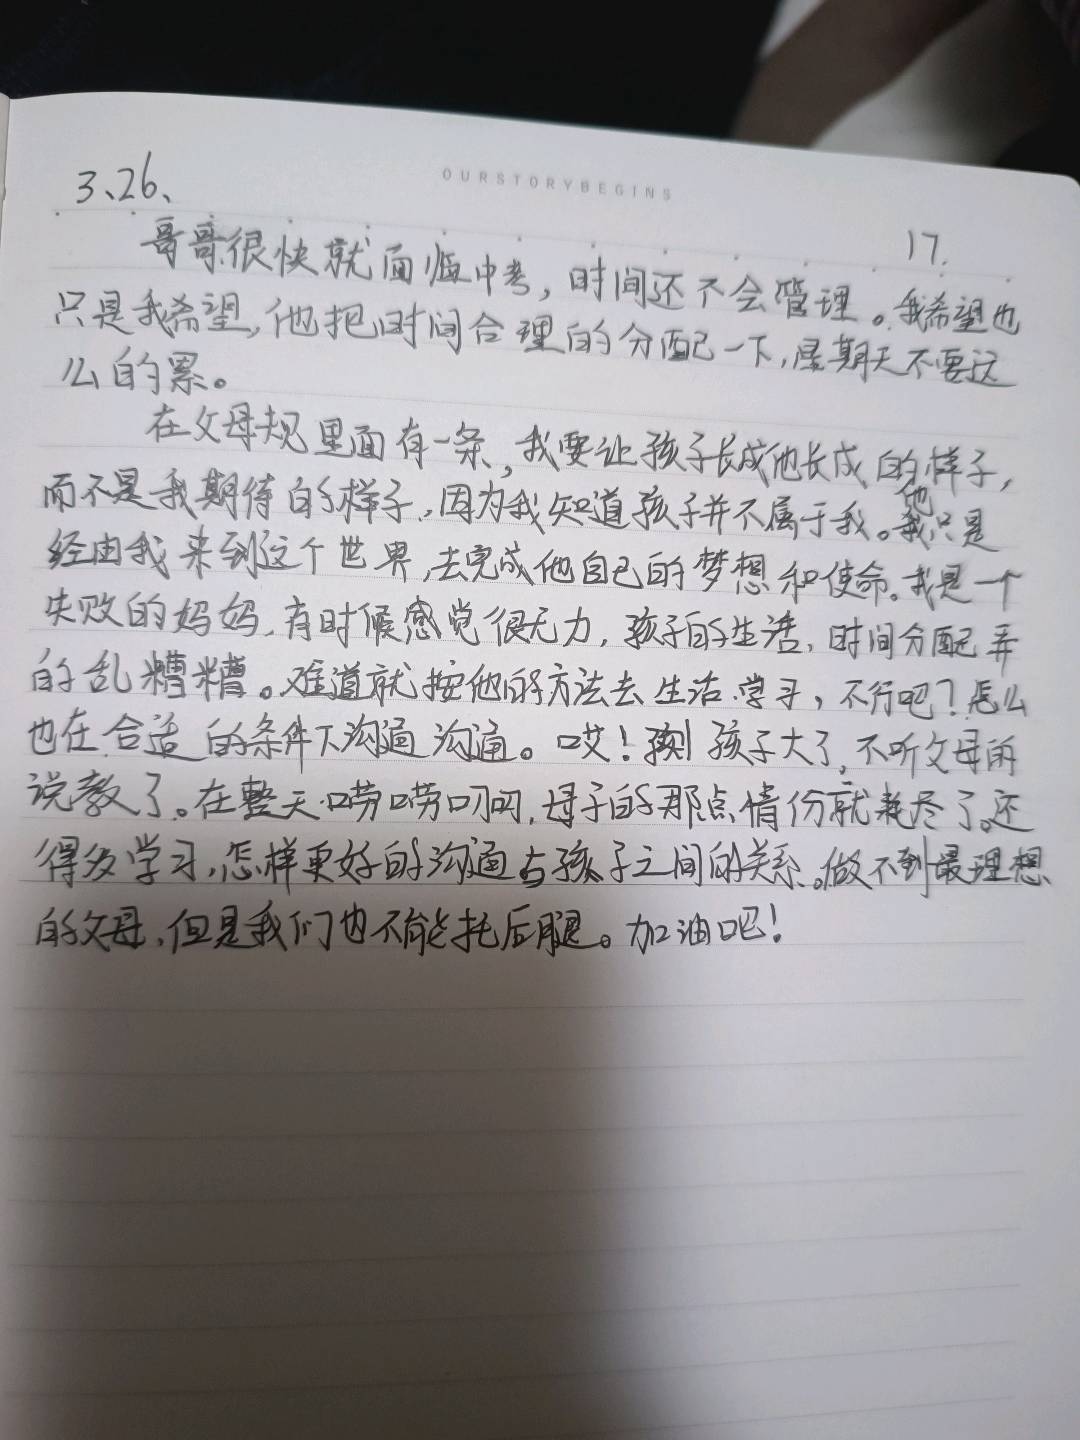 OURSTORYBEGINS
3、26、
17.
哥哥很快就面临中考，时间还不会管理。我希望也
只是我希望，他把时间合理的分配一下，星期天不要这
么的累。
在父母规里面有一条，我要让孩子长成他长成的样子，
而不是我期待的样子，因为我知道孩子并不属于我。他只是
经由我来到这个世界，去完成他自己的梦想和使命。我是一个
失败的妈妈，有时候感觉很无力，孩子的生活，时间分配弄
的乱糟糟。难道就按他的方法去生活学习，不行吧？怎么
也在合适的条件下沟通沟通。哎！孩子大了，不听父母的
说教了。在整天唠唠叨叨，母子的那点情份就耗尽了。还
得多学习，怎样更好的沟通与孩子之间的关系。做不到最理想
的父母，但是我们也不能托后腿。加油吧！